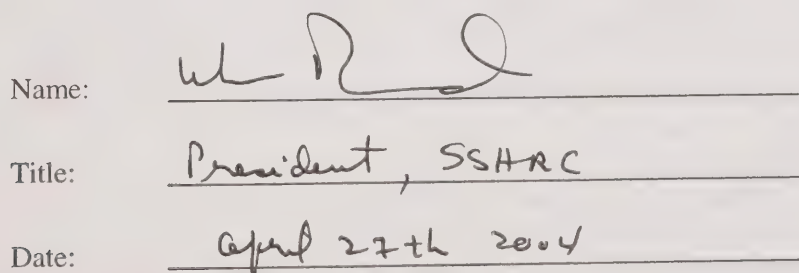 Name:
Title: President, SSHRC
Date: April 27th 2004